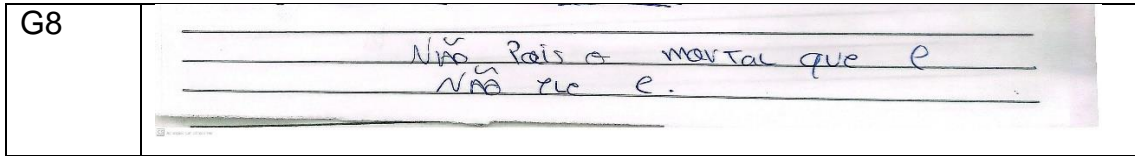 G8
Não Pois o mortal que e
Não ele e.